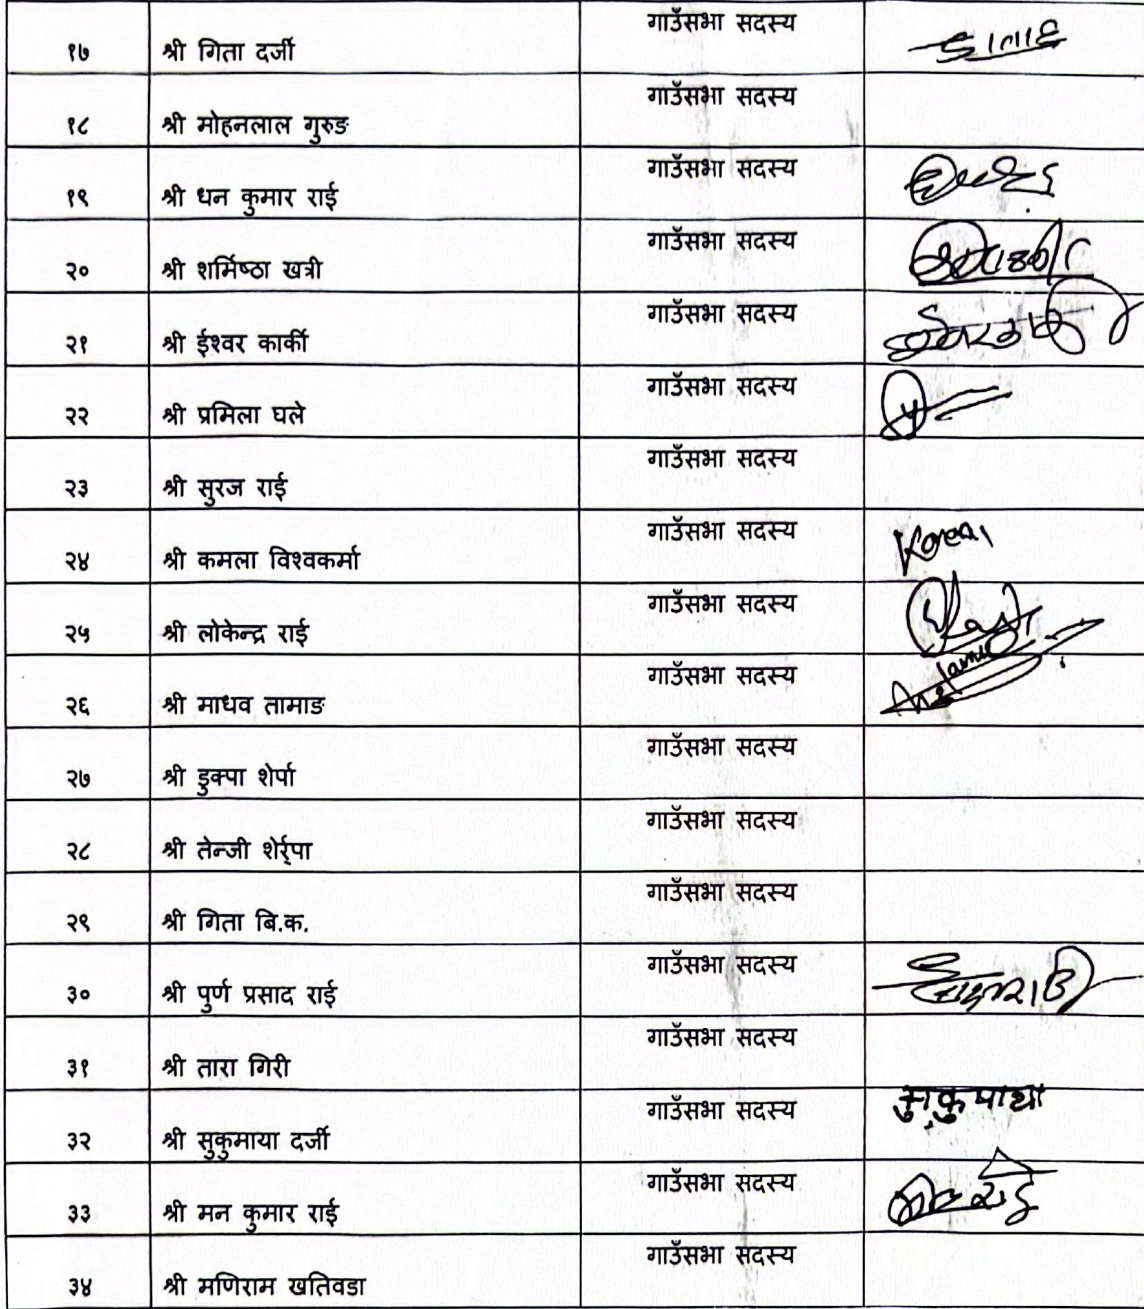 १७ श्री गिता दर्जी गाउँसभा सदस्य
१८ श्री मोहनलाल गुरुङ गाउँसभा सदस्य
१९ श्री धन कुमार राई गाउँसभा सदस्य
२० श्री शर्मिष्ठा खत्री गाउँसभा सदस्य
२१ श्री ईश्वर कार्की गाउँसभा सदस्य
२२ श्री प्रमिला घले गाउँसभा सदस्य
२३ श्री सुरज राई गाउँसभा सदस्य
२४ श्री कमला विश्वकर्मा गाउँसभा सदस्य
२५ श्री लोकेन्द्र राई गाउँसभा सदस्य
२६ श्री माधव तामाङ गाउँसभा सदस्य
२७ श्री डुक्पा शेर्पा गाउँसभा सदस्य
२८ श्री तेन्जी शेर्र्पा गाउँसभा सदस्य
२९ श्री गिता बि.क. गाउँसभा सदस्य
३० श्री पुर्ण प्रसाद राई गाउँसभा सदस्य
३१ श्री तारा गिरी गाउँसभा सदस्य
३२ श्री सुकुमाया दर्जी गाउँसभा सदस्य
३३ श्री मन कुमार राई गाउँसभा सदस्य
३४ श्री मणिराम खतिवडा गाउँसभा सदस्य